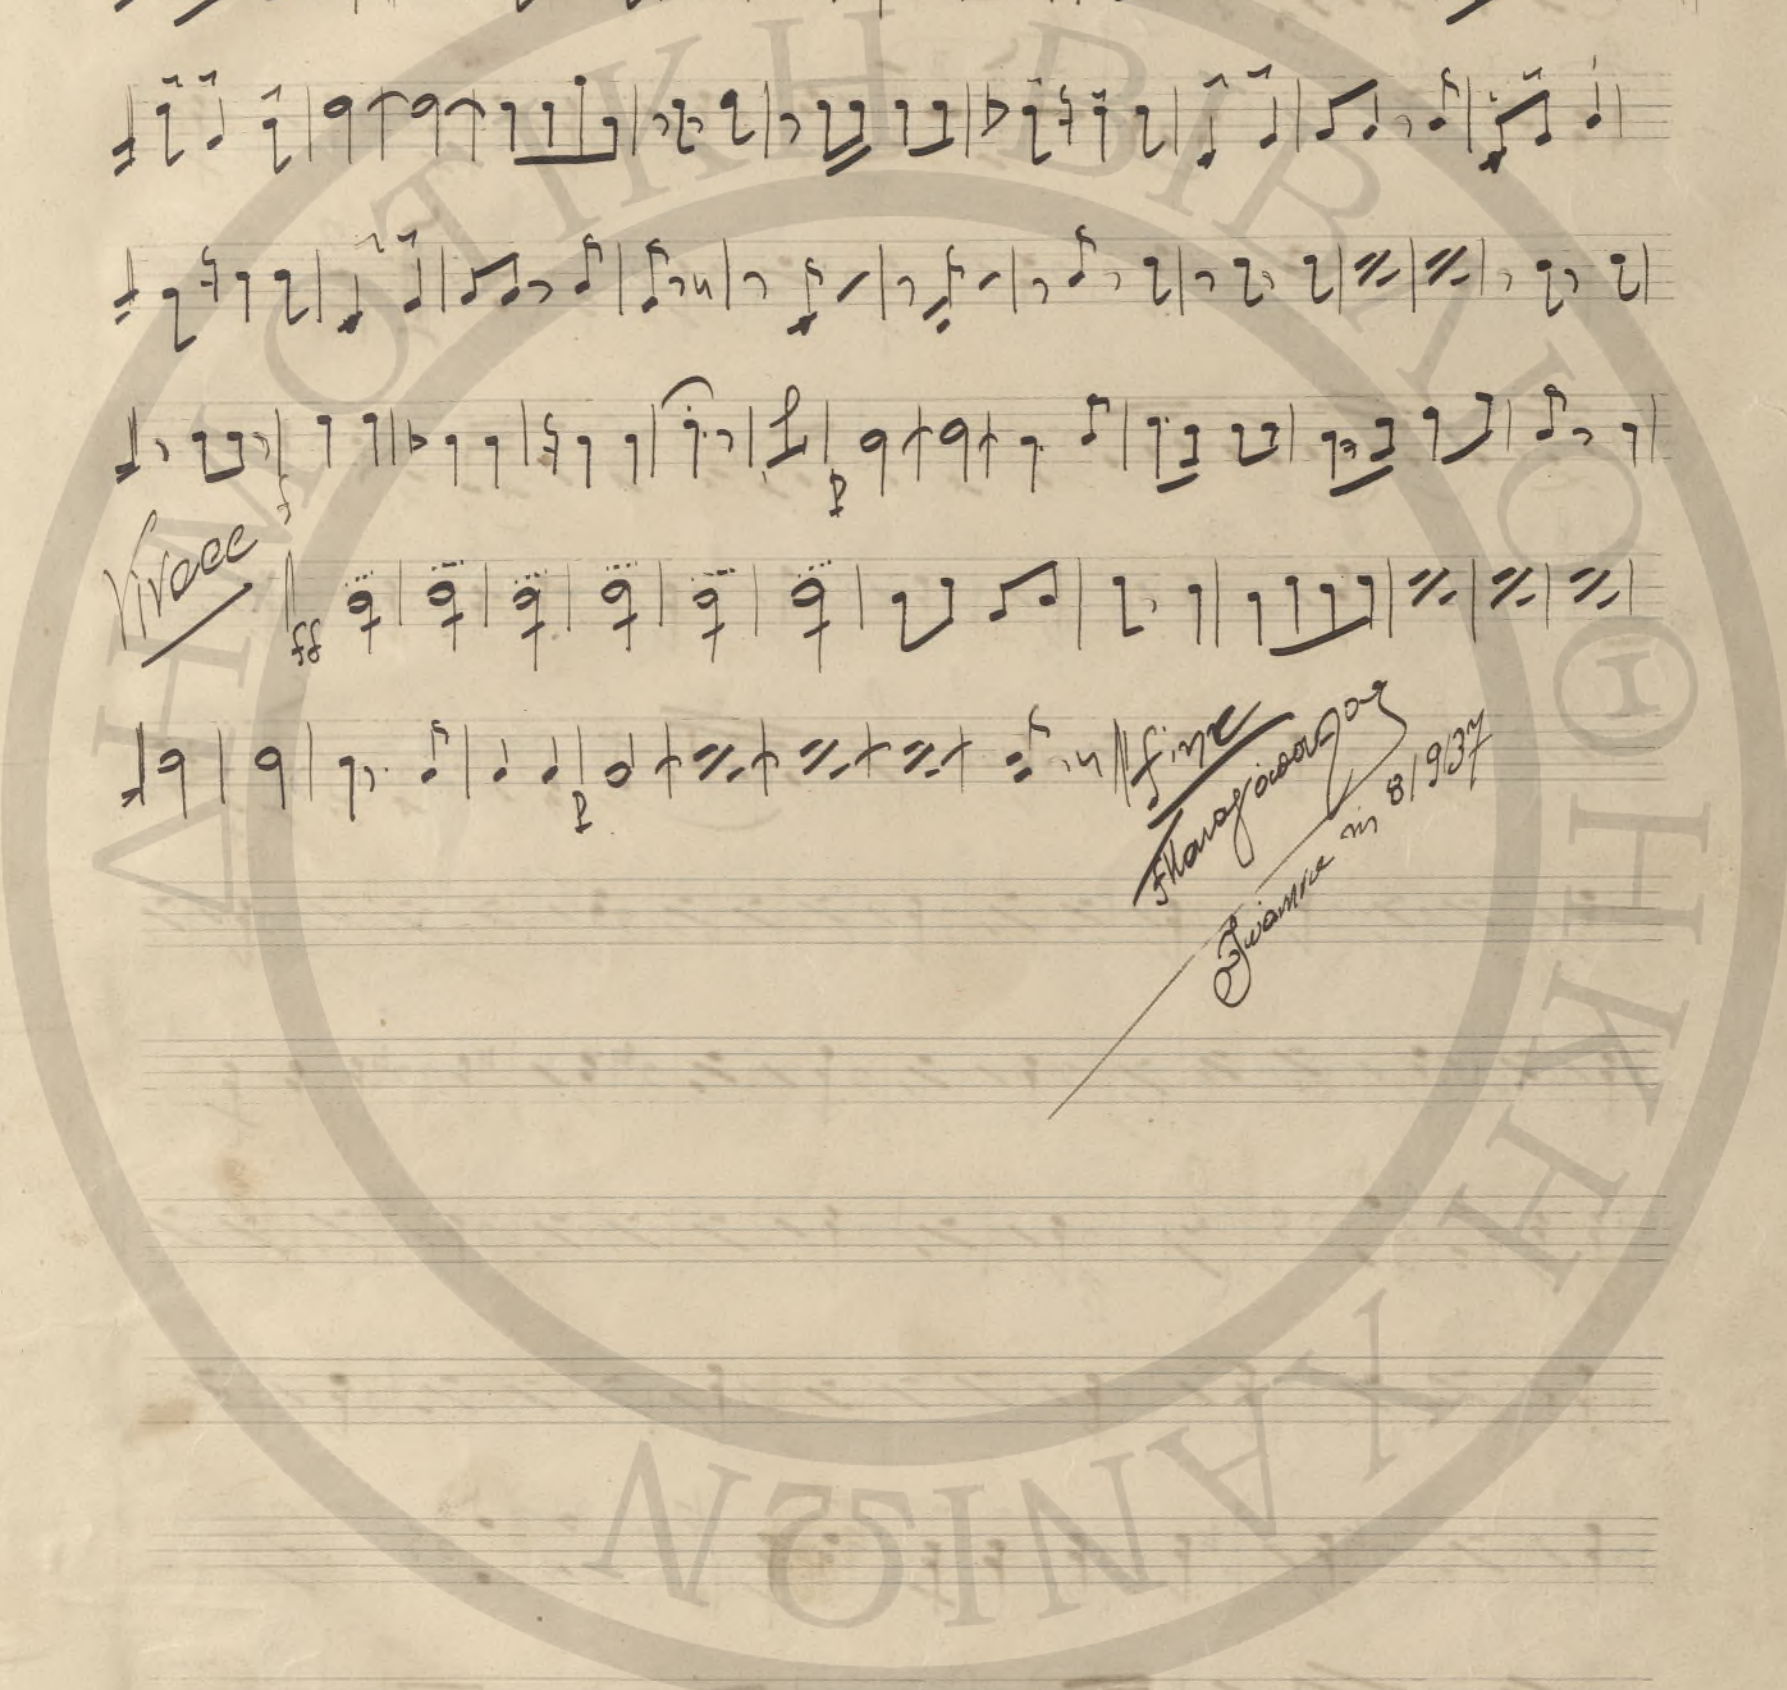 p
Vivace
ff
p
fine
in 8/9/37
ΔΗΜΟΤΙΚΗ ΒΙΒΛΙΟΘΗΚΗ ΧΑΝΙΩΝ